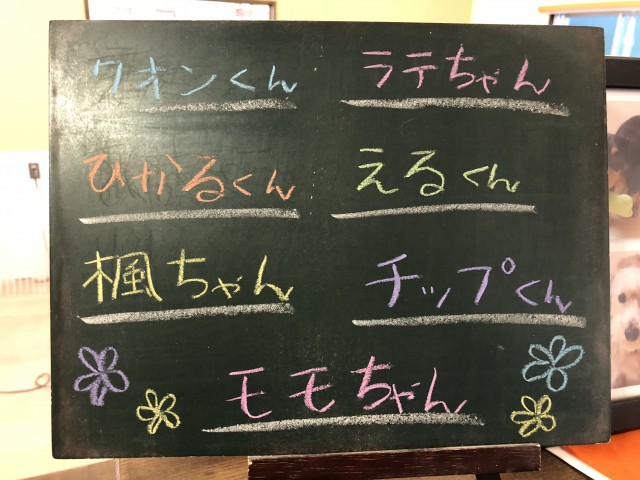 クオンくん ラテちゃん
ひかるくん えるくん
楓ちゃん チップくん
モモちゃん